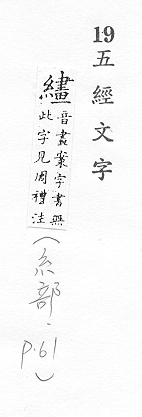 19五經文字
繣音畫案字書無
此字見周禮注
(糸部.
p.61)